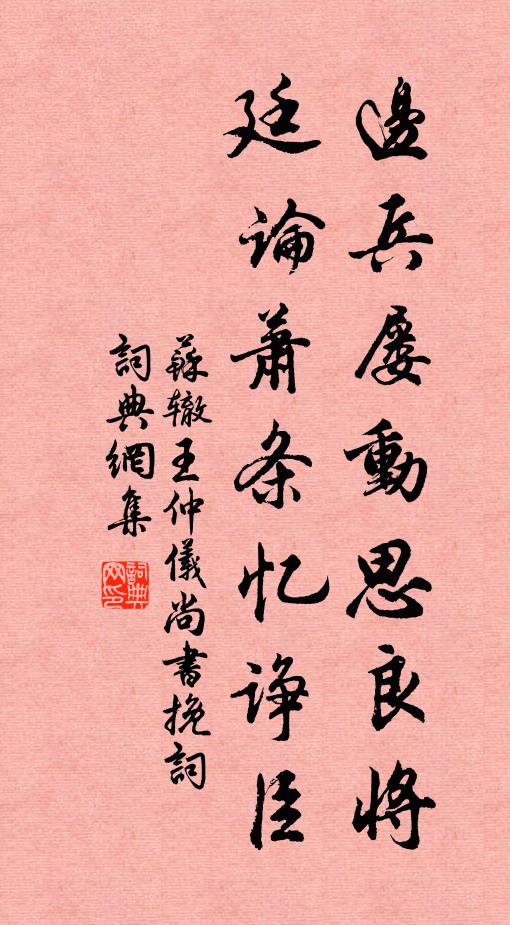 邊兵屡動思良將
廷論蕭条忆诤臣
蘇辙王仲儀尚書挽詞
詞典網集
詞典网印